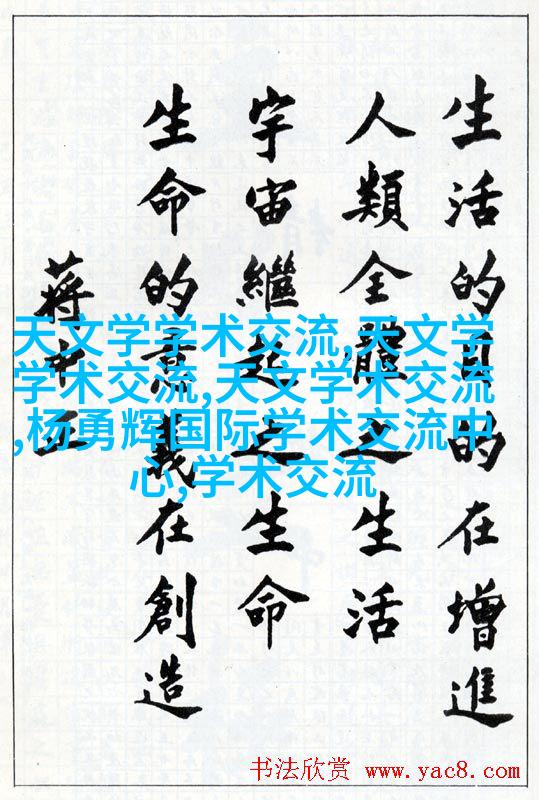 生活的目的在增進
人類全體之生活
宇宙繼起之生命
生命的意義在創造
蔣中正
天文学学术交流,天文学
学术交流,天文学术交流
,杨勇辉国际学术交流中
心,学术交流
书法欣赏 www.yac8.com